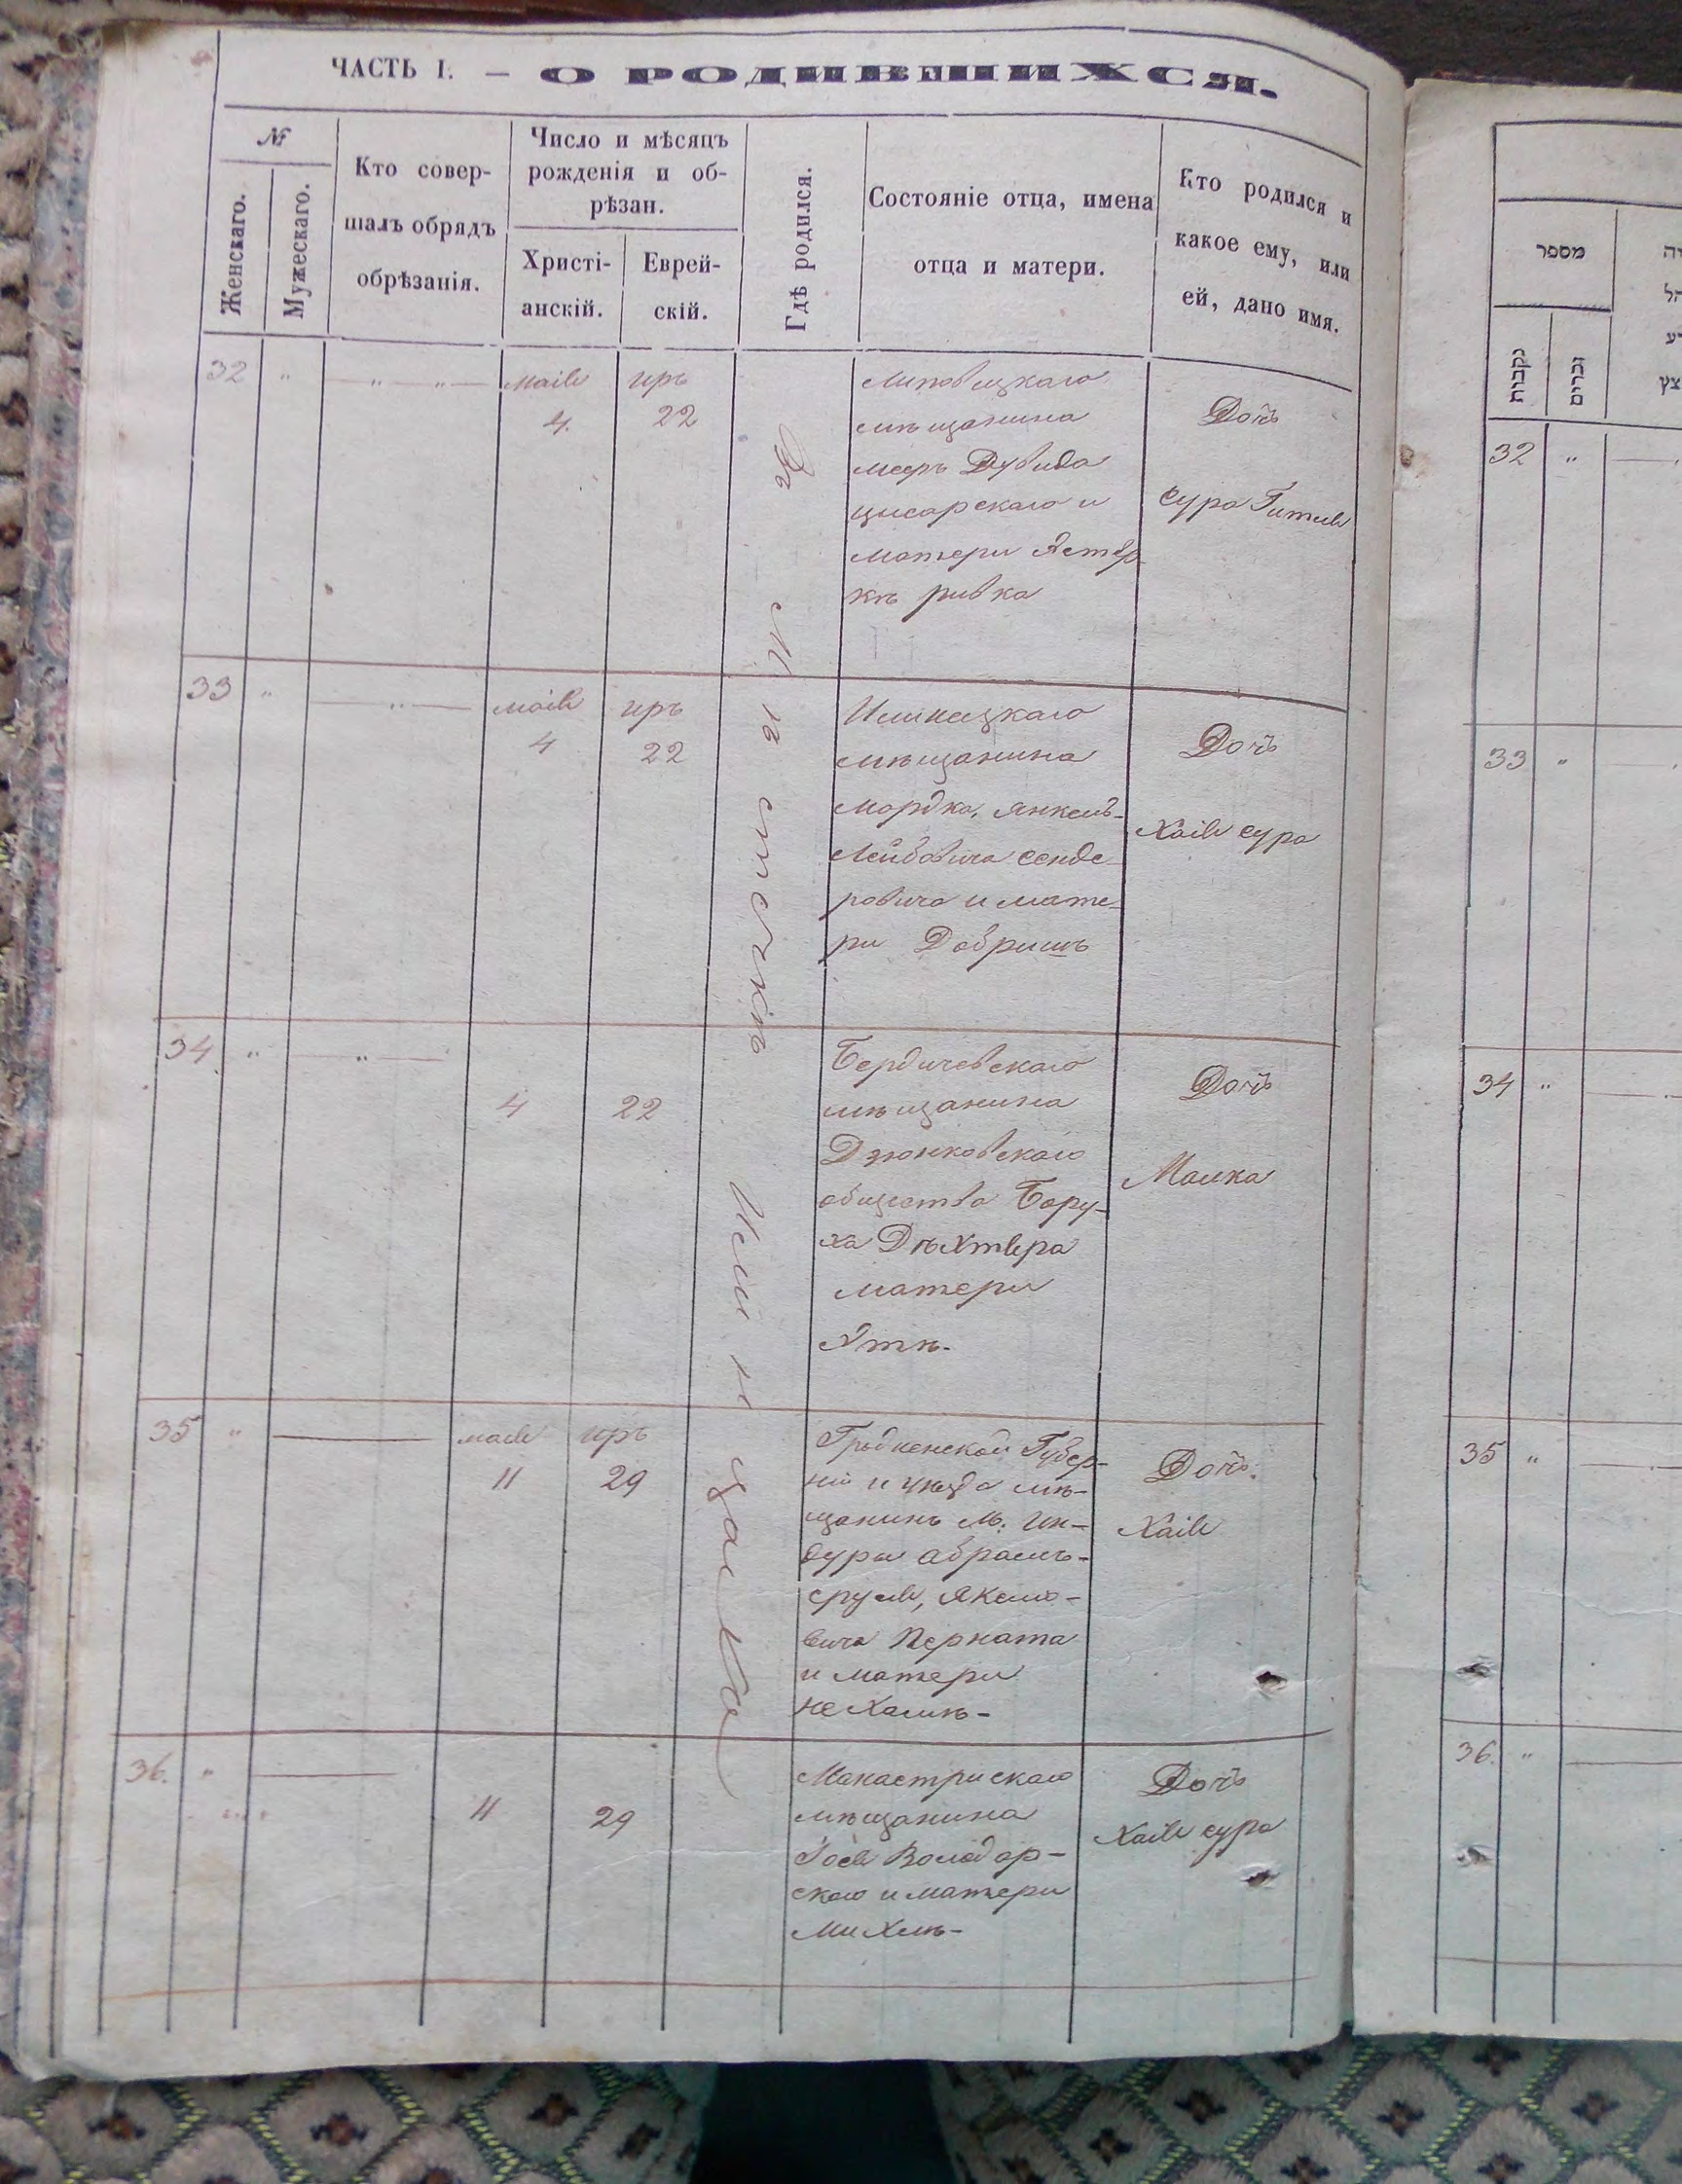 ЧАСТЬ I. — О РОДИВШИХСЯ.
№
Женскаго.
Мужескаго.
Кто совер-
шалъ обрядъ
обрѣзанія.
Число и мѣсяцъ
рожденія и об-
рѣзан.
Христі-
анскій.
Еврей-
скій.
Гдѣ родился.
Состояніе отца, имена
отца и матери.
Кто родился и
какое ему, или
ей, дано имя.
32 " — " — " — маія иръ
4. 22
Липовецкаго
мѣщанина
мееръ Дувида
цисарскаго и
матери Эстер
кѣ ривка
Дочъ
сура Гитля
33 " — " — маія иръ
4 22
Илинецкаго
мѣщанина
мордка, янкель-
Лейбовича сенде-
ровича и мате-
ри Добришъ
Дочъ
Хаія сура
34 " — " —
4 22
Бердичевскаго
мѣщанина
Дзюнковскаго
общества Бору-
ха Дѣхтяра
матери
Этѣ.
Дочъ
Малка
35 " — маія иръ
11 29
Гродненской Губер-
ніи и уѣзда мѣ-
щанинъ М. Ин-
дуры абрамъ-
сруля,
вича Перката
и матери
нехамѣ-
Дочъ.
Хаія
36. " —
11 29
Манастрискаго
мѣщанина
Володар-
скаго и матери
михлѣ-
Дочъ
Хаія сура
В М и стечкѣ Илинцахъ
מספר
נקבות
זכרים
32 "
33 "
34 "
35 "
36. "